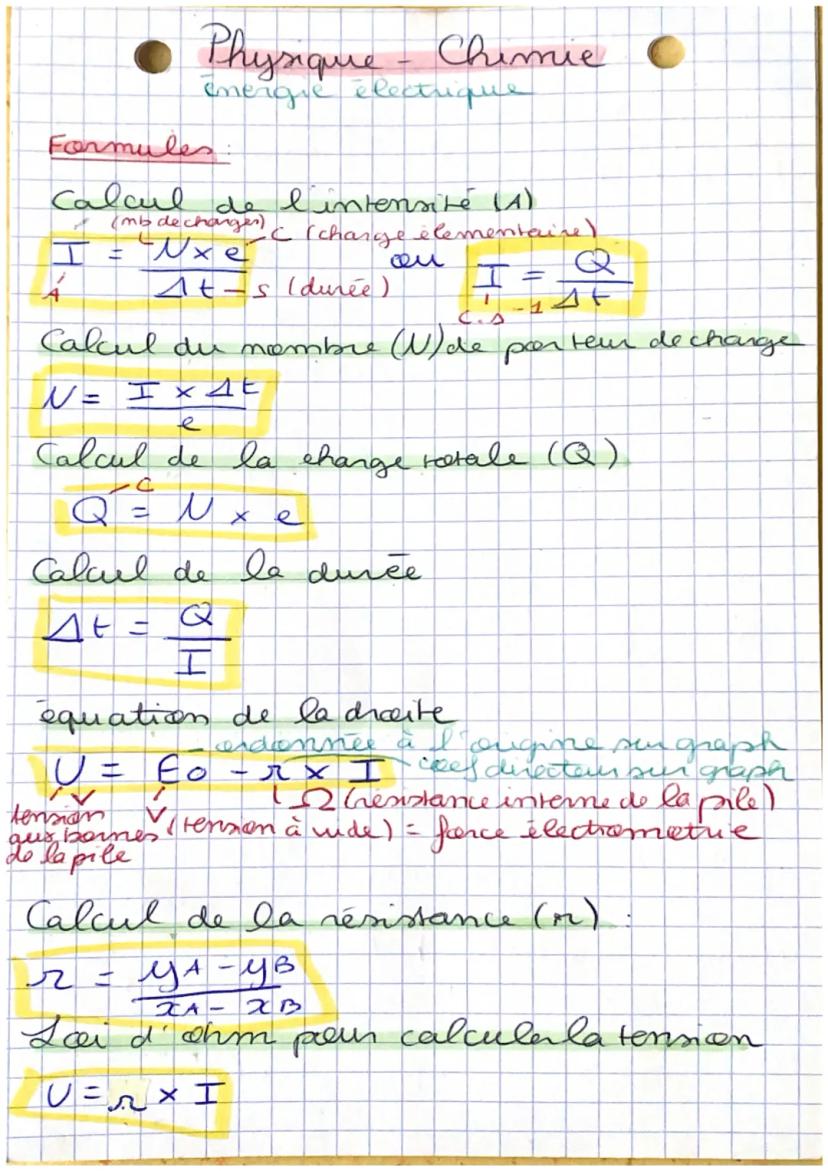 Physique - Chimie
énergie électrique
Formules :
Calcul de l'intensité (A)
(nb de charges) C (charge élementaire)
I = N x e / Δt ou I = Q / Δt
A s (durée) C.s-1
Calcul du nombre (N) de porteur de charge
N = I x Δt / e
Calcul de la charge totale (Q)
C
Q = N x e
Calcul de la durée
Δt = Q / I
équation de la droite
ordonnée à l'origine sur graph
U = E0 - r x I coef directeur sur graph
V V Ω (résistance interne de la pile)
tension aux bornes de la pile (tension à vide) = force électrometrie
Calcul de la résistance (r) :
r = yA - yB / xA - xB
Loi d'ohm pour calculer la tension
U = r x I